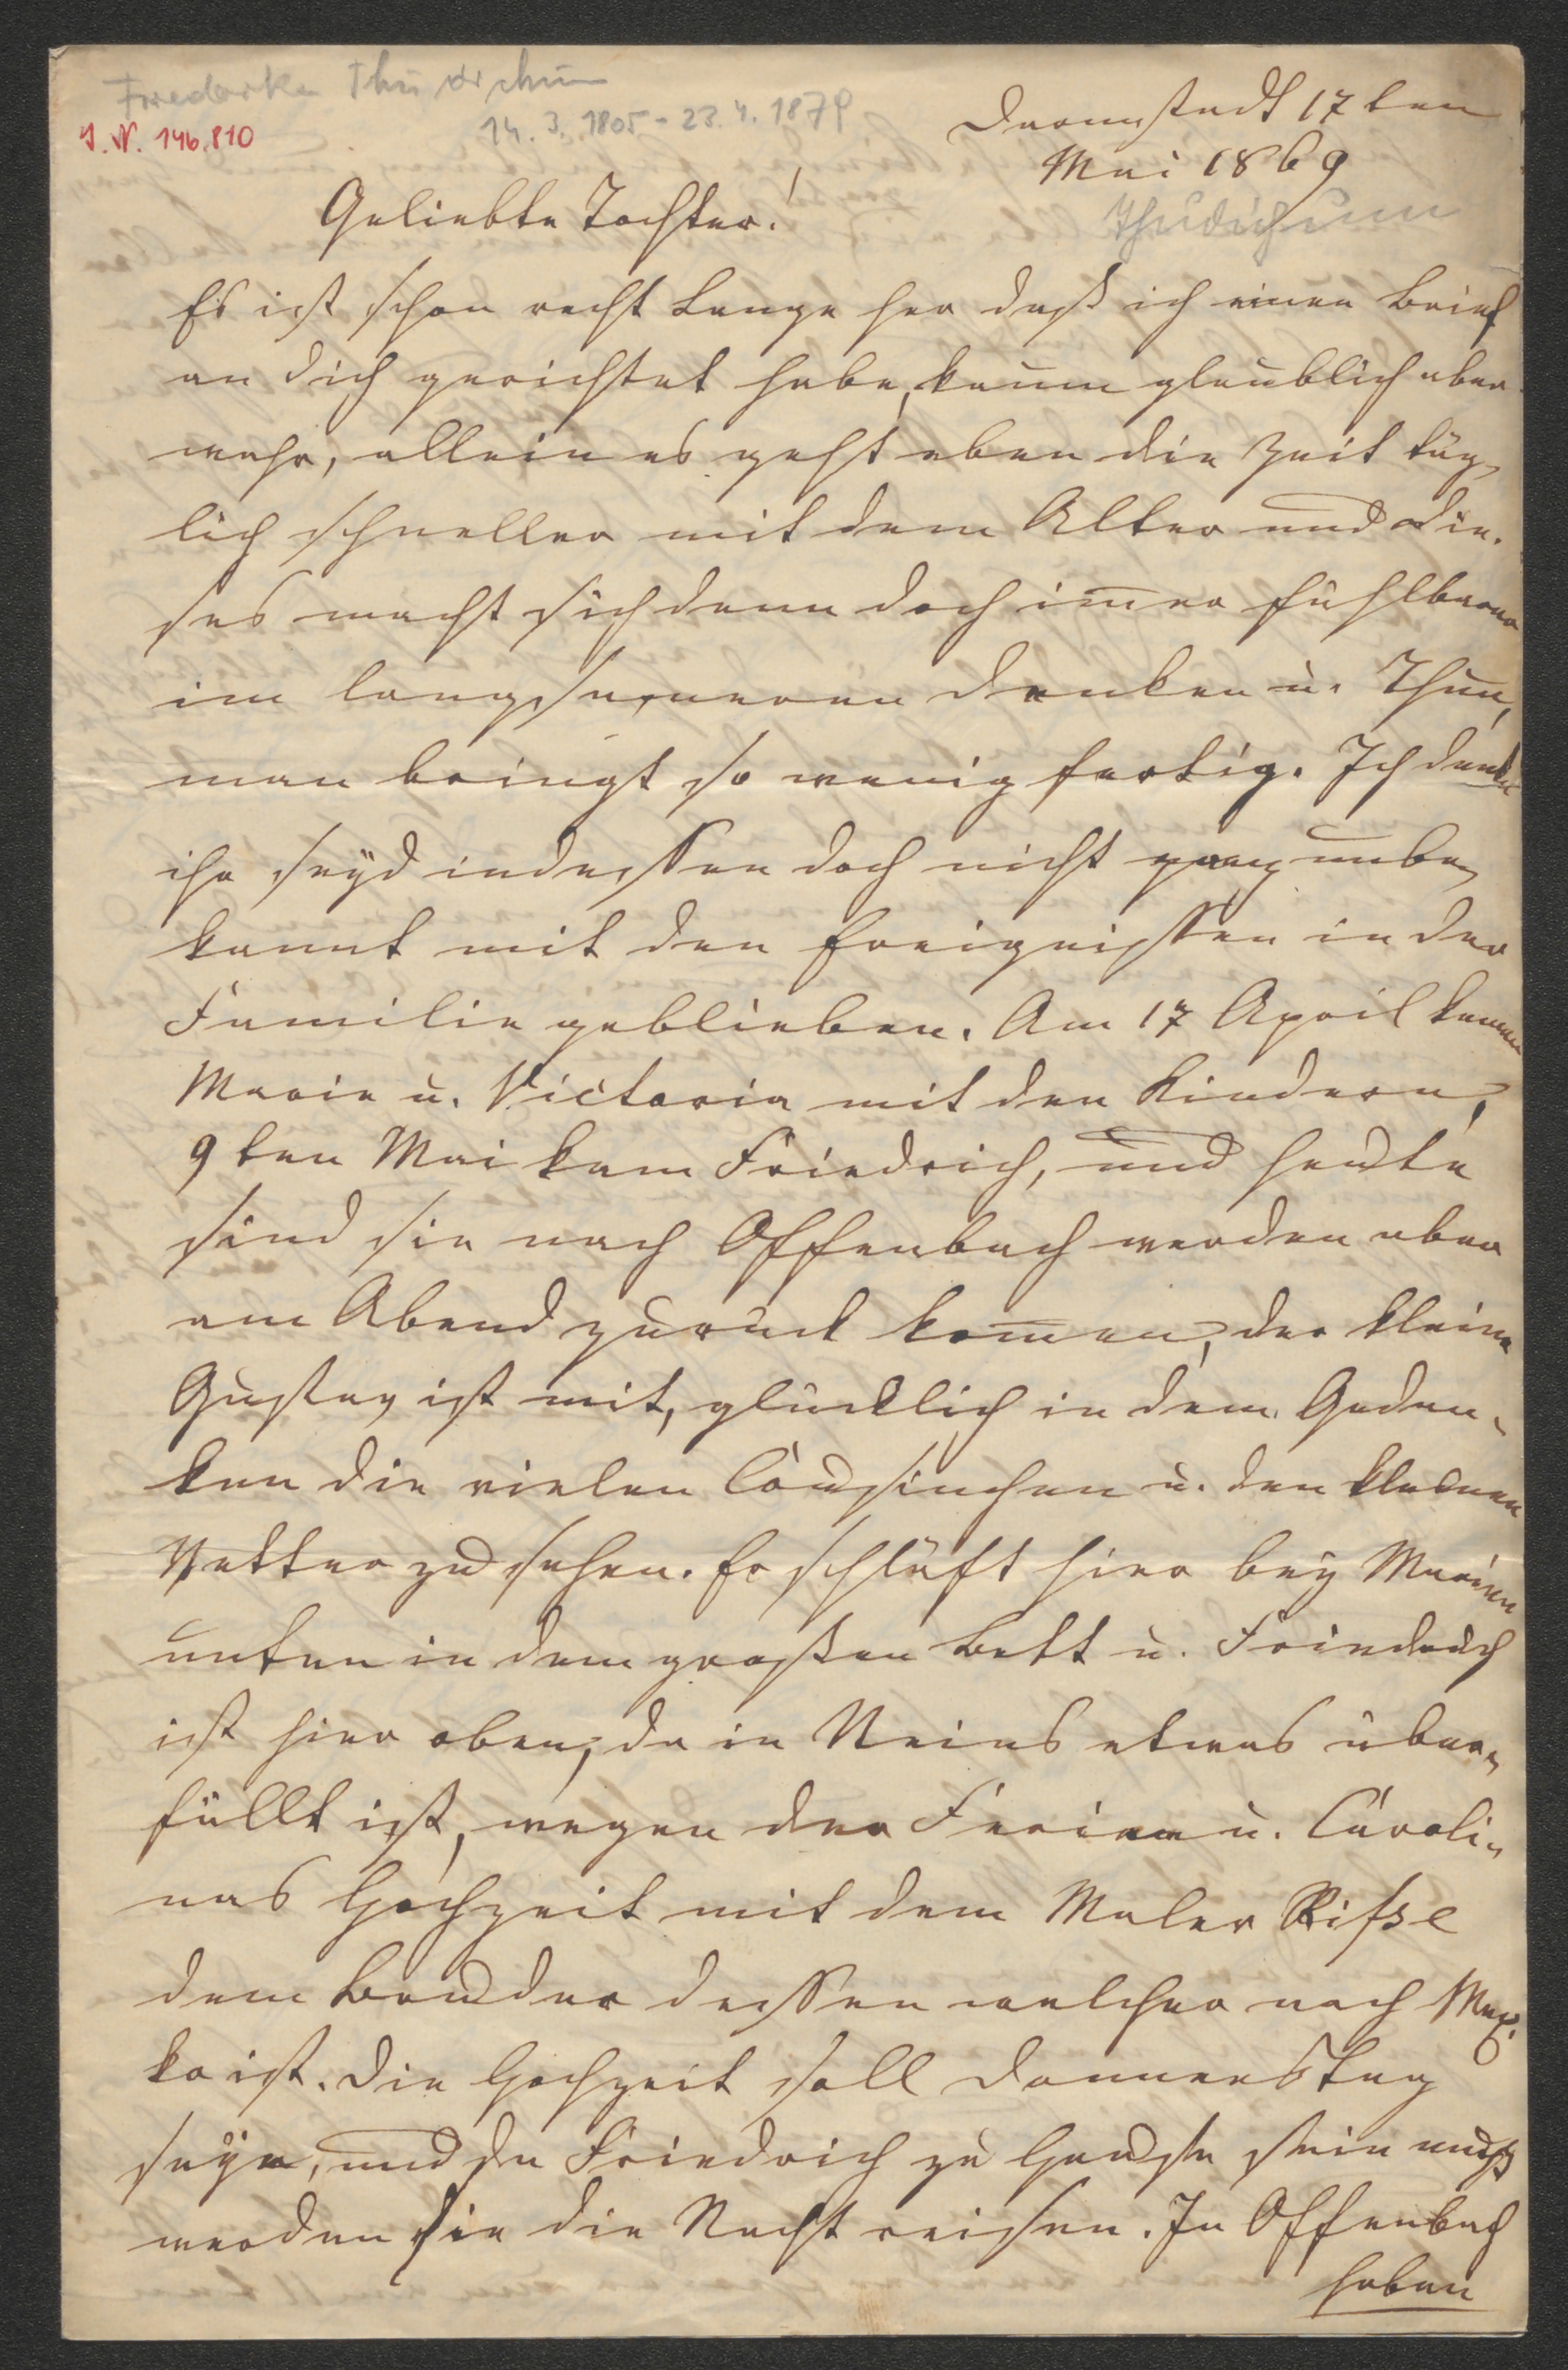 Friederike Thudichum
14. 3. 1805 - 23. 4. 1879
I. N. 146.810
Darmstadt 17ten
Mai 1869
Thudichum
Geliebte Tochter!
Es ist schon recht Lange her daß ich einen Brief
an dich gerichtet habe, kaum glaublich aber
wahr, allein es geht eben die Zeit täg-
lich schneller mit dem Alter und die-
ses macht sich denn doch im̅er fühlbarer
im langsameren Denken u. Thun,
man bringt so wenig fertig. Ich denke
ihr seyd indessen doch nicht ganz unbe-
kannt mit den Ereignissen in der
Familie geblieben. Am 17 April kamen
Marie u. Victoria mit den Kindern,
9ten Mai kam Friedrich, und heute
sind sie nach Offenbach werden aber
am Abend zurück kom̅en, der kleine
Gustav ist mit, glücklich in dem Geden-
ken die vielen Cousinchen u. den kleinen
Vetter zu sehen. Er schläft hier bey Marien
unten in dem großen Bett u. Friedrich
ist hier oben, da in Neins etwas über-
füllt ist, wegen der Ferien u. Caroli-
nas Hochzeit mit dem Maler
dem Bruder dessen welcher nach Mexi-
ko ist. Die Hochzeit soll Donnerstag
seyn, und da Friedrich zu Hause sein muß
werden sie die Nacht reisen. In Offenbach
haben